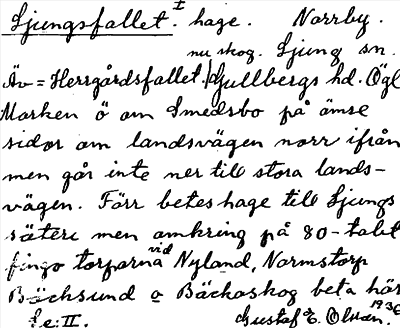 Ljungsfallet. I hage. Norrby.
nu skog. Ljung sn.
Äv = Herrgårdsfallet. Gullbergs hd. Ögl
Marken ö om Smedsbo på ömse
sidor om landsvägen norr ifrån
men går inte ner till stora lands-
vägen. Förr betes hage till Ljungs
säteri men omkring på 80-talet
fingo torparna vid Nyland, Normstorp
Bäcksund o Bäckaskog beta här
Se: II. Gustaf E. Olson. 1936